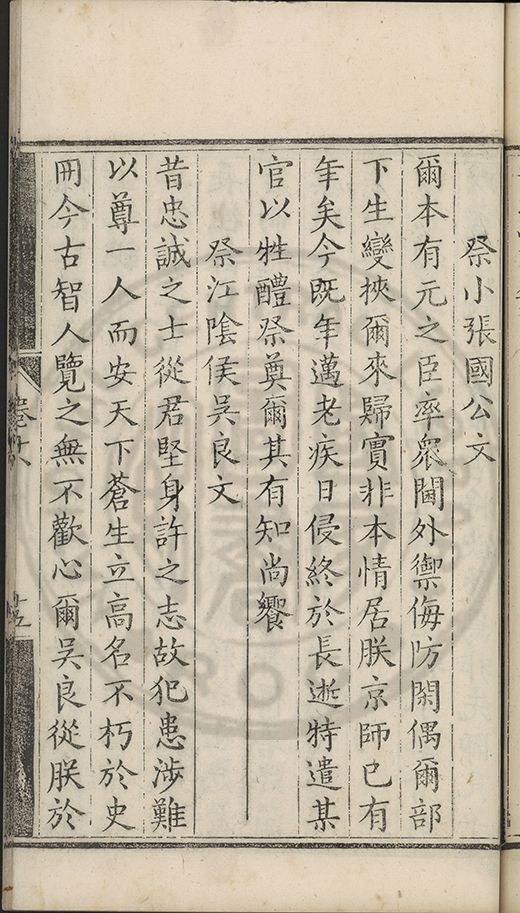 祭小張國公文
爾本有元之臣率衆閫外禦侮防閑偶爾部
下生變挾爾來歸實非本情居朕京師已有
年矣今既年邁老疾日侵終於長逝特遣某
官以牲醴祭奠爾其有知尚饗
祭江陰侯吳良文
昔忠誠之士從君堅身許之志故犯患涉難
以尊一人而安天下蒼生立高名不朽於史
冊今古智人覽之無不歡心爾吳良從朕於